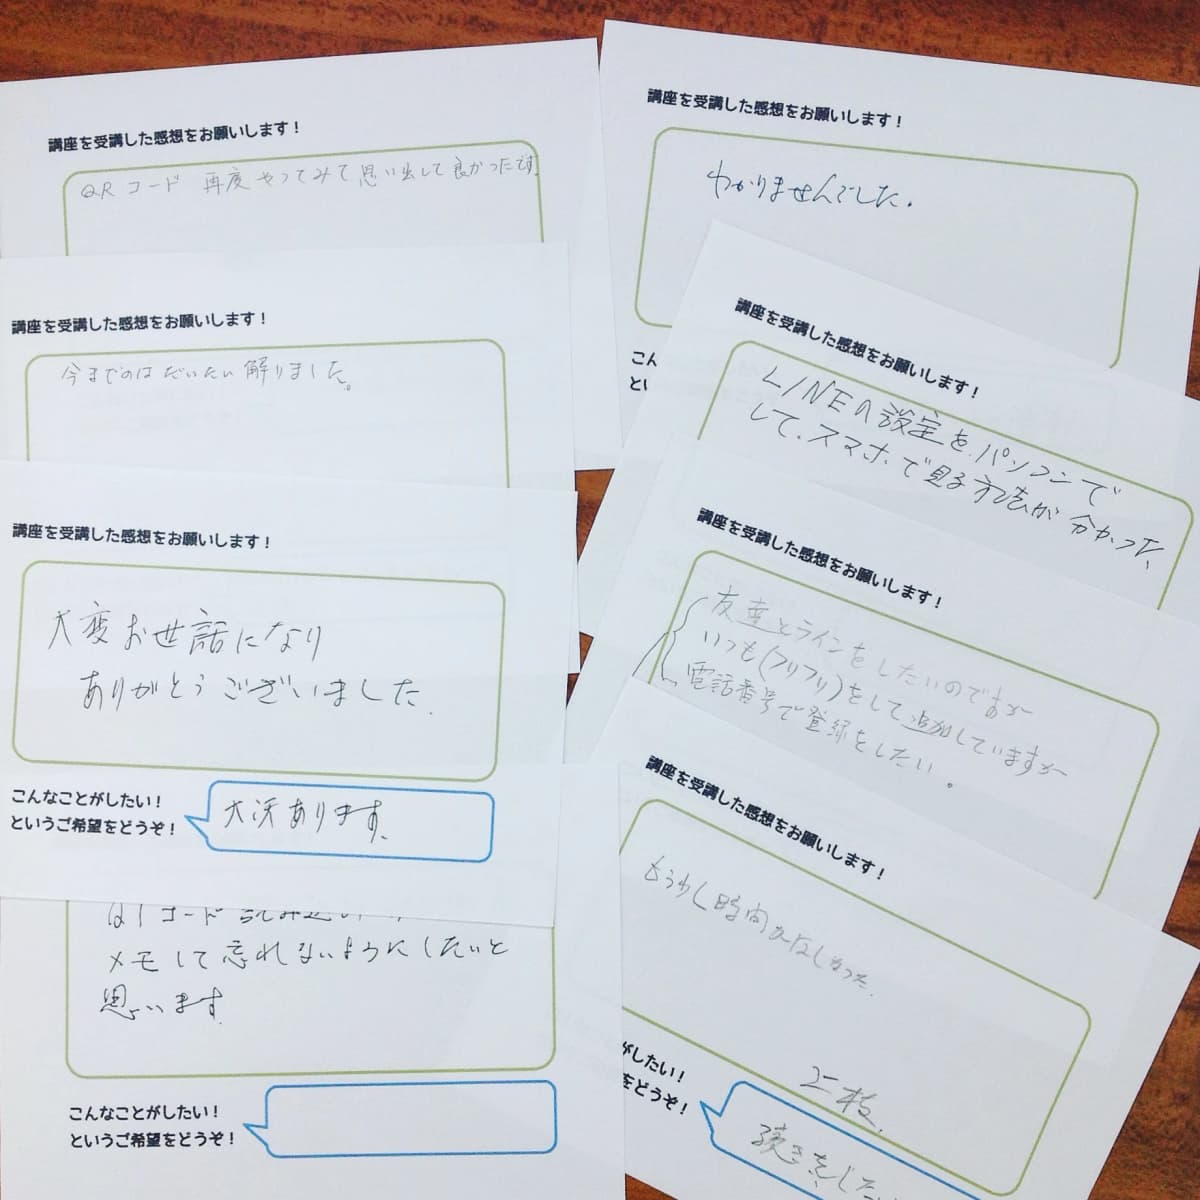 講座を受講した感想をお願いします！
QRコード 再度やってみて思い出して良かったです.
講座を受講した感想をお願いします！
今までのはだいたい解りました。
講座を受講した感想をお願いします！
大変お世話になり
ありがとうございました.
こんなことがしたい！
というご希望をどうぞ！
大沢あります.
コード
メモして忘れないようにしたいと
思います.
こんなことがしたい！
というご希望をどうぞ！
講座を受講した感想をお願いします！
わかりませんでした.
こん
とい
講座を受講した感想をお願いします！
LINEの設定を、パソコンで
して、スマホで見る方法が分かった、
講座を受講した感想をお願いします！
友達とラインをしたいのですが
いつも(フリフリ)をして追加していますが
電話番号で登録をしたい。
講座を受講した感想をお願いします！
もう少し時間がほしかった.
がしたい！
をどうぞ！
続きをした